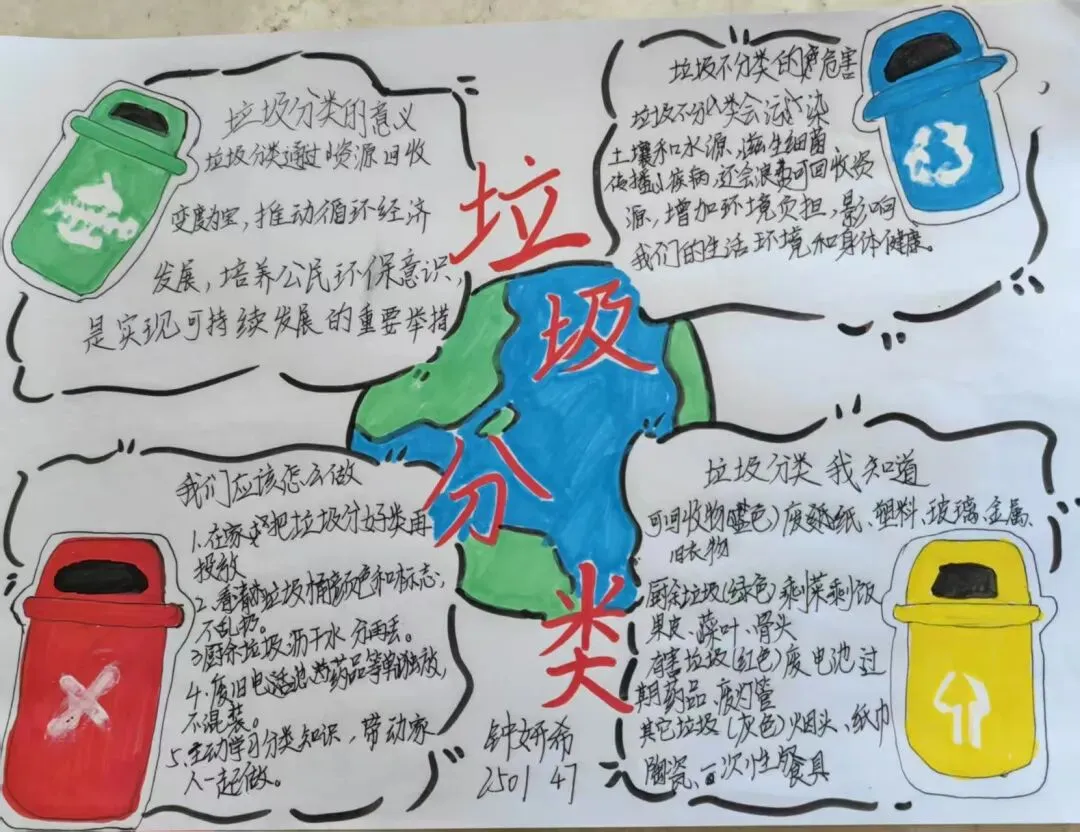 垃圾分类的意义
垃圾分类通过资源回收
变废为宝，推动循环经济
发展，培养公民环保意识，
是实现可持续发展的重要举措
垃圾不分类的危害
垃圾不分类会污染
土壤和水源、滋生细菌
传播疾病,还会浪费可回收资
源，增加环境负担，影响
我们的生活环境和身体健康。
垃
圾
分
类
我们应该怎么做
1.在家把垃圾分好类再
投放
2.看清垃圾桶颜色和标志，
不乱扔。
3.厨余垃圾沥干水分再丢。
4.废旧电池、药品等单独放，
不混装。
5.主动学习分类知识，带动家
人一起做。
垃圾分类我知道
可回收物(蓝色)废纸、塑料、玻璃、金属、
旧衣物
厨余垃圾(绿色)剩菜剩饭
果皮、蔬叶、骨头
有害垃圾(红色)废电池过
期药品、废灯管
其它垃圾(灰色)烟头、纸巾
陶瓷、一次性餐具
钟妍希
2501 47